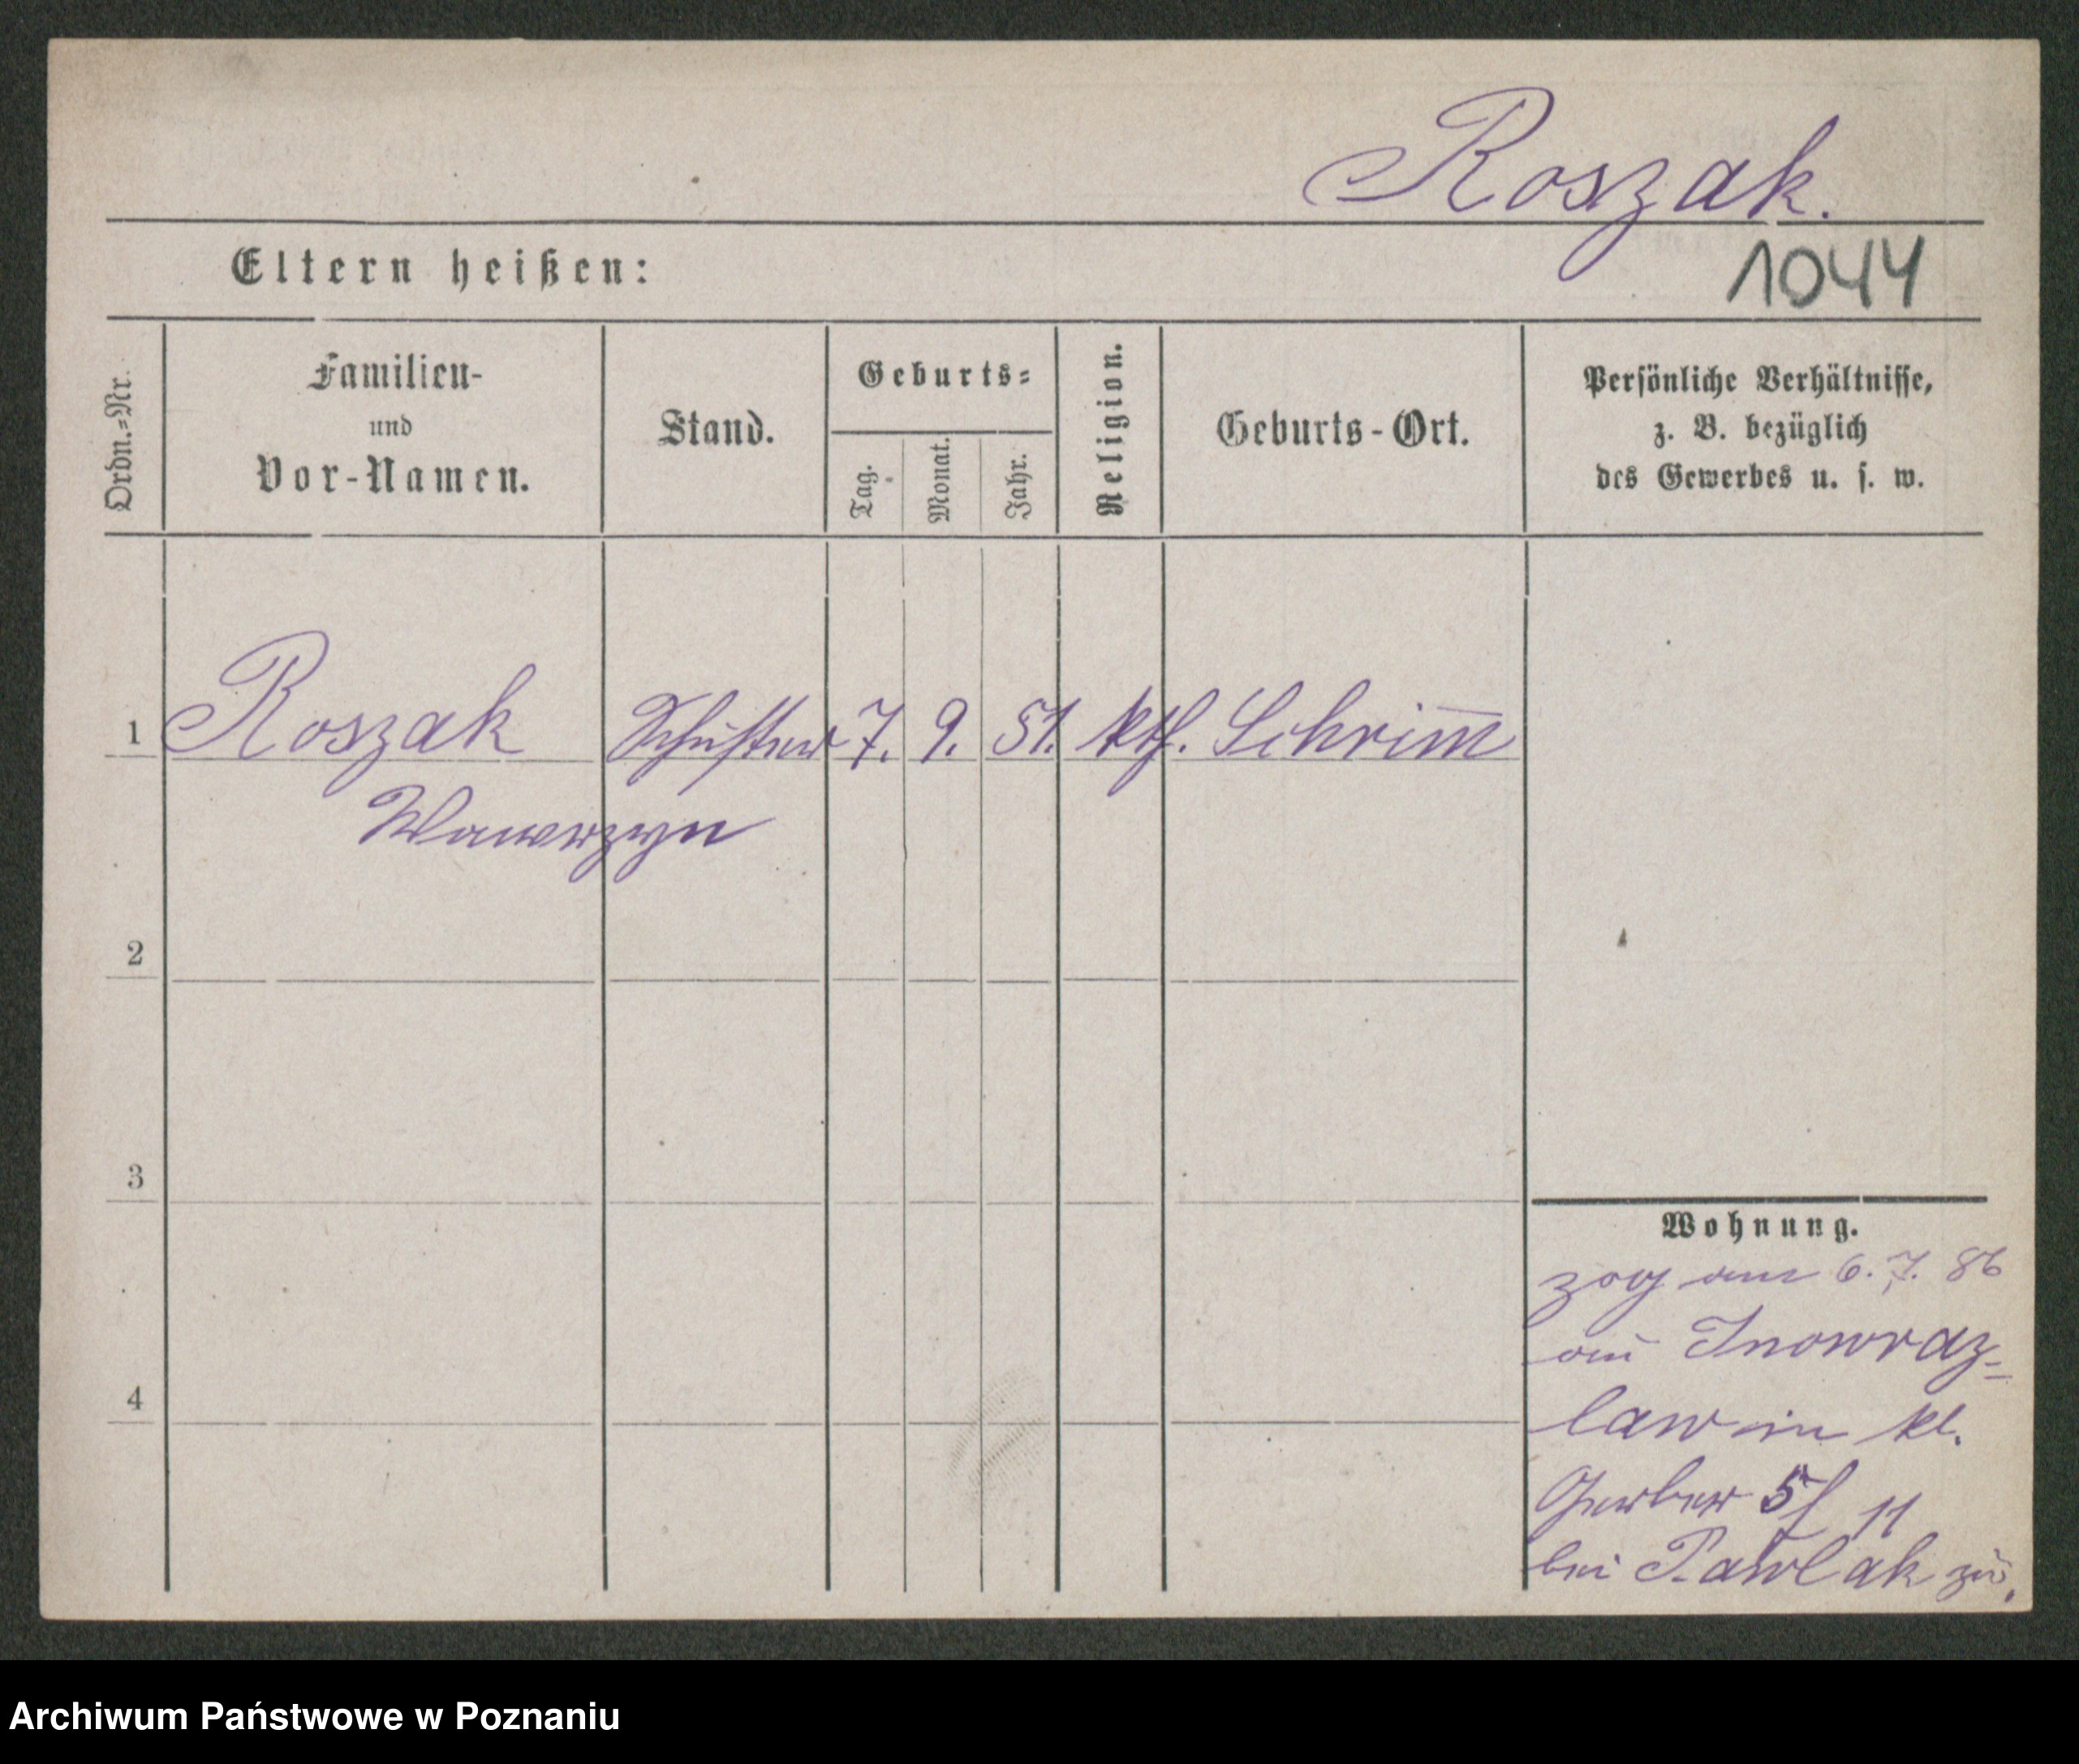 Roszak.
Eltern heißen:
1044
Ordn.=Nr.
Familien-
und
Vor-Namen.
Stand.
Geburts=
Tag.
Monat.
Jahr.
Religion.
Geburts-Ort.
Persönliche Verhältnisse,
z. B. bezüglich
des Gewerbes u. s. w.
1 Roszak Schuster 7. 9. 51. kth. Schrim̅
Wawrzyn
2
3
4
Wohnung.
zog am 6. 7. 86
aus Inowraz=
law in kl.
Gerber 5/ 11
bei Pawlak zu.
Archiwum Państwowe w Poznaniu